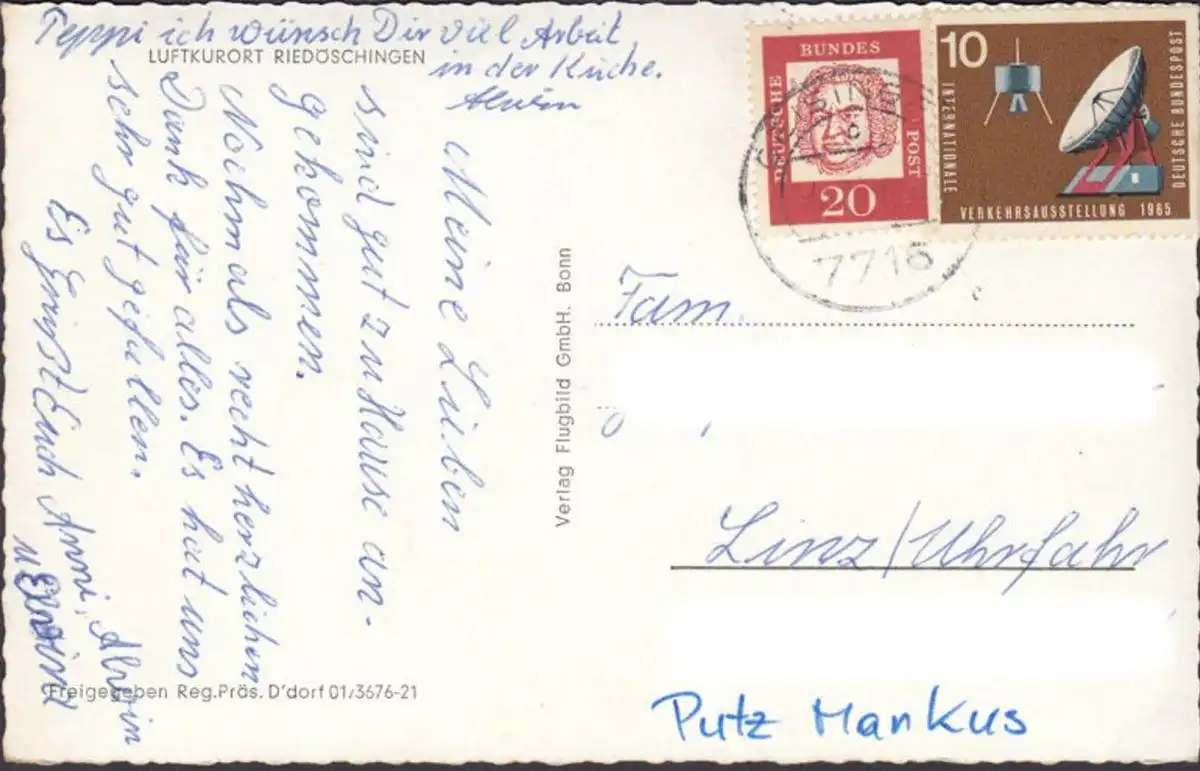 Peppi ich wünsch Dir viel Arbeit
in der Küche.
Alwin
LUFTKURORT RIEDÖSCHINGEN
Meine Lieben
sind gut zu Hause an-
gekommen.
Nochmals recht herzlichen
Dank für alles. Es hat uns
sehr gut gefallen.
Es grüsst Euch Anni, Alwin
u.
Freigegeben Reg.Präs. D'dorf 01/3676-21
Verlag Flugbild GmbH. Bonn
DEUTSCHE
BUNDES
POST
20
10
INTERNATIONALE
VERKEHRSAUSSTELLUNG 1965
DEUTSCHE BUNDESPOST
7716
Fam.
Linz/Uhrfahr
Putz Markus